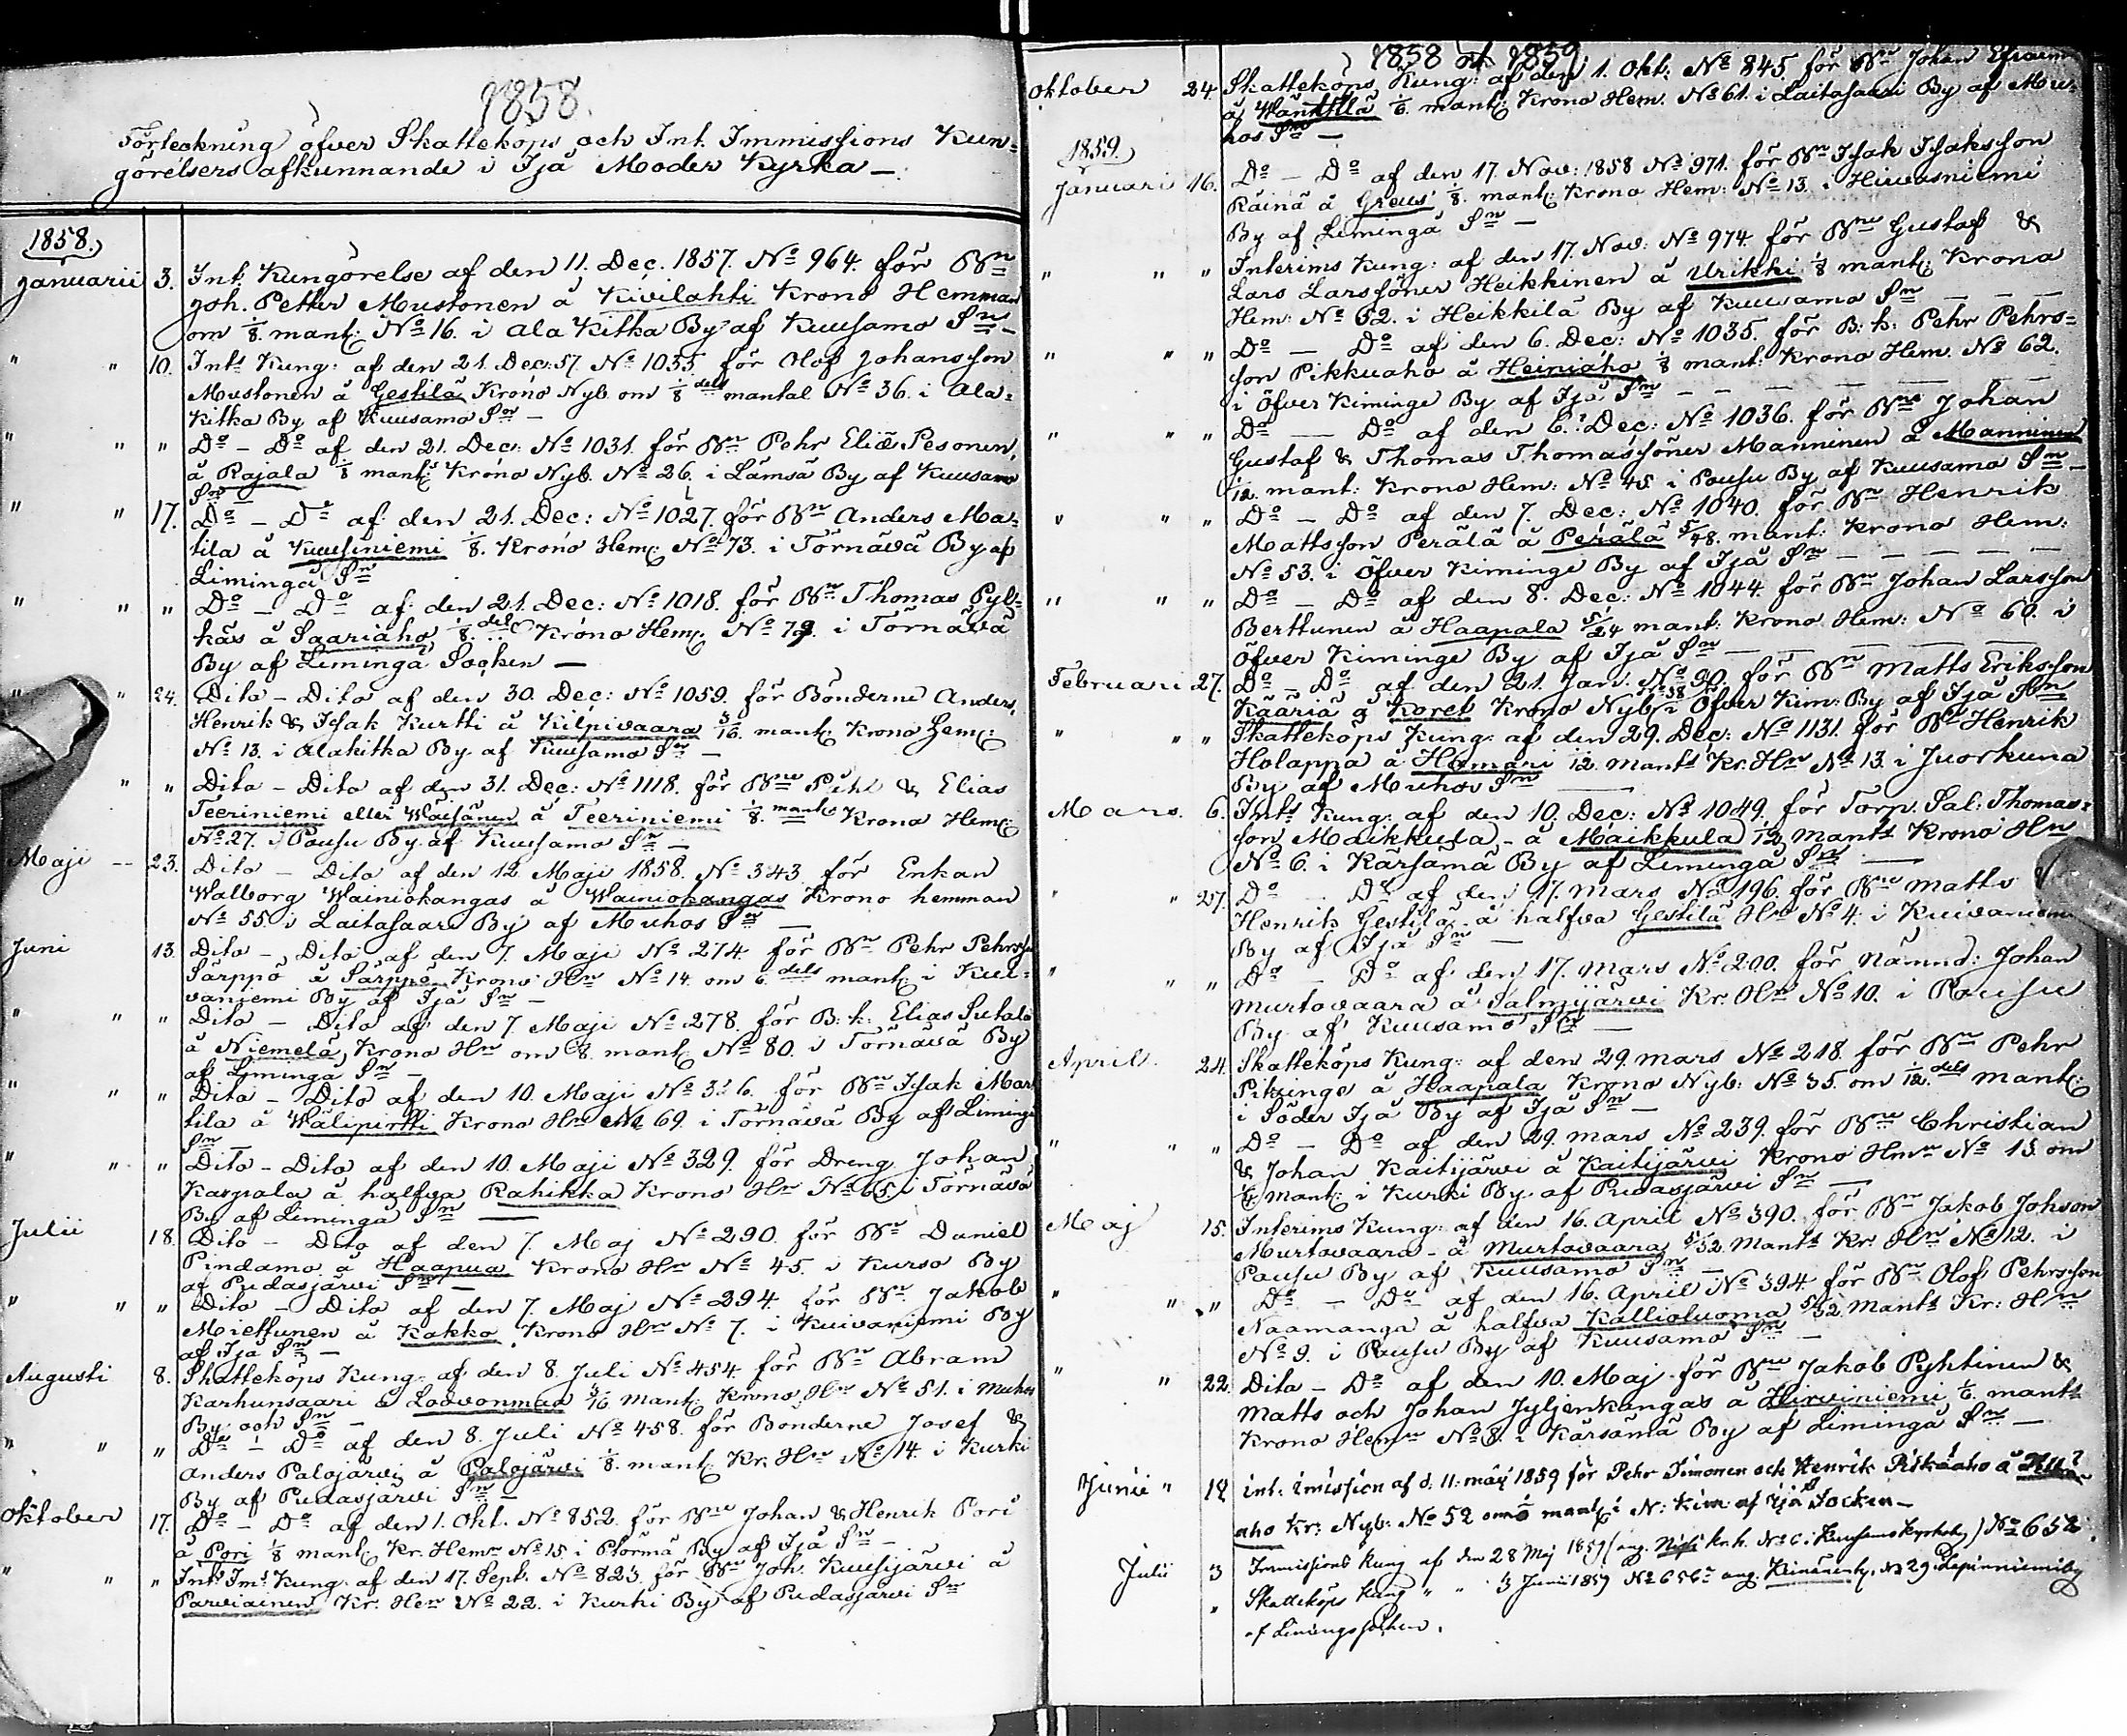 1858.
Förteckning öfver Skatteköps och Int. Immissions Kun-
görelsers afkunnande i Ijå Moder Kyrka —
1858.
Januarii 3. Int. Kungörelse af den 11. Dec. 1857. No 964. för Bn
Joh. Petter Mustonen å Kivilahti Krono Hemman
om 1/8. mant: No 16. i Ala Kitka By af Kuusamo Sn —
" " 10. Ints Kung: af den 21. Dec: 57. No 1033. för Olof Johansson
Mustonen å Gestilä Krono Nyb. om 1/8 dels mantal No 36. i Ala-
kitka By af Kuusamo Sn —
" " " Do — Do af den 21. Dec: No 1031. för Bn Pehr Eliæ Pesonen,
å Rajala 1/8 mant: Krono Nyb. No 26. i Lämsä By af Kuusamo
Sn
" " 17. Do — Do af den 21. Dec: No 1027. för Bn Anders Ma-
tila å Kuusiniemi 1/8. Krono Hem: No 73. i Törnävä By af
Limingå Sn
" " " Do — Do af den 21. Dec: No 1018. för Bn Thomas Pyl-
käs å Saariaho 1/8. dels Krono Hem: No 79. i Törnävä
By af Limingå Socken —
" " 24. Dito — Dito af den 30. Dec: No 1059. för Bönderne Anders,
Henrik & Isak Kurtti å Kilpivaara 3/16. mant: Krono Hem:
No 13. i Alakitka By af Kuusamo Sn —
" " Dito — Dito af den 31. Dec: No 1118. för Bne Pehr & Elias
Teeriniemi eller Väisänen å Teeriniemi 1/8. mants Krono Hem:
No 27. i Pousu By af Kuusamo Sn —
Maji — 23. Dito — Dito af den 12. Maji 1858. No 343 för Enkan
Walborg Wainiokangas å Wainiokangas Krono hemman
No 55. i Laitasaari By af Muhos Sn —
Juni 13. Dito — Dito af den 7. Maji No 274. för Bn Pehr Pehrss:
Särppö å Särppö Krono Hn No 14. om 6. dels mant: i Kui-
vaniemi By af Ijå Sn —
" " " Dito — Dito af den 7. Maji No 278. för B: k: Elias Sutala
å Niemelä, Krono Hn om 1/8. mant: No 80. i Törnävä By
af Limingå Sn —
" " " Dito — Dito af den 10. Maji No 326. för Bn Isak Mar
tila å Wälipirtti Krono Hn No 69. i Törnävä By af Liminge
Sn —
" " " Dito — Dito af den 10. Maji No 329. för Dreng Johan
Karpala å halfva Rahikka Krono Hn No 65. i Törnävä
By af Limingå Sn —
Julii 18. Dito — Dito af den 7. Maj No 290. för Bn Daniel
Pindamo å Haapua Krono Hn No 45. i Kurso By
af Pudasjärvi Sn —
" " " Dito — Dito af den 7. Maj No 294. för Bn Jakob
Miettunen å Kakko Krono Hn No 7. i Kuivaniemi By
af Ijå Sn —
Augusti 8. Skatteköps Kung: af den 8. Juli No 454. för Bn Abram
Karhunsaari å Lodvonmaa 3/16 mant: Krono Hn No 51. i Muhos
By och Sn —
" " " Do — Do af den 8. Juli No 458. för Bönderne Josef &
Anders Palojärvi å Palojärvi 1/8. mant: Kr. Hn No 14. i Kurki
By af Pudasjärvi Sn —
Oktober 17. Do — Do af den 1. Okt. No 852. för Bne Johan & Henrik Pori
å Pori 1/8 mant: Kr. Hemn No 15 i Plormä By af Ijå Sn —
" " " Ints Ims Kung: af den 17. Sept. No 823. för Bn Joh. Kuusijärvi å
Parviainen Kr: Hen No 22. i Kurki By af Pudasjärvi Sn
1858 och 1859.
Oktober 24. Skatteköps Kung: af den 1. Okt: No 845. för Bn Johan Efraim
å Wänttilä 1/6. mant: Krono Hem: No 61. i Laitasaari By af Mu-
hos Sn —
1859.
Januari 16. Do — Do af den 17. Nov: 1858 No 971. för Bn Isak Isaksson
Räinä å Greus 1/8. mant: Krono Hem: No 13. i Hirvasniemi
By af Limingå Sn —
" " " Interims Kung: af den 17. Nov: No 974. för Bne Gustaf &
Lars Larssöner Heikkinen å Urikki 1/8 mant: Krono
Hem: No 52. i Heikkilä By af Kuusamo Sn — — —
" " " Do — Do af den 6. Dec: No 1035. för B: k: Pehr Pehrs-
son Pikkuaho å Heiniaho 1/8 mant: Krono Hem. No 62.
i Öfver Kiminge By af Ijå Sn — — — — —
" " " Do — Do af den 6. Dec: No 1036. för Bne Johan
Gustaf & Thomas Thomassöner Manninen å Manninen
1/12. mant: Krono Hem: No 45 i Pousu By af Kuusamo Sn —
" " " Do — Do af den 7. Dec: No 1040. för Bn Henrik
Mattsson Perälä å Perälä 5/48. mant: Krono Hem:
No 53. i Öfver Kiminge By af Ijå Sn — — — — —
" " " Do — Do af den 8. Dec: No 1044. för Bn Johan Larsson
Berttunen å Haapala 5/24 mant: Krono Hem: No 60. i
Öfver Kiminge By af Ijå Sn — — — — —
Februari 27. Do — Do af den 21. Jan: No 90. för Bn Matts Eriksson
Kääriä å Koret Krono Nyb: No 38 i Öfver Kim: By af Ijå Sn
" " " Skatteköps Kung: af den 29. Dec: No 1131. för Bn Henrik
Holappa å Hamari 1/12. mants Kr. Hn No 13. i Juorkuna
By af Muhos Sn —
Mars. 6. Ints Kung: af den 10. Dec: No 1049. för Torp. Sal: Thomas-
son Maikkula, — å Maikkula 1/12 mants Krono Hn
No 6. i Kärsämä By af Limingå Sn —
" " 27. Do — Do af den 17. Mars No 196. för Bne Matts &
Henrik Gestilä å halfva Gestilä Hn No 4. i Kuivaniemi
By af Ijå Sn —
" " " Do — Do af den 17. Mars No 200. för Nämnd: Johan
Murtovaara å Jalmijärvi Kr. Hn No 10. i Pousu
By af Kuusamo Sn —
April. 24. Skatteköps Kung: af den 29. Mars No 218. för Bn Pehr
Pikringe å Haapala Krono Nyb: No 35. om 1/12. dels mant:
i Söder Ijå By af Ijå Sn —
" " " Do — Do af den 29. Mars No 239. för Bne Christian
& Johan Kaitijärvi å Kaitijärvi Krono Hmn No 13. om
1/6 mant: i Kurki By af Pudasjärvi Sn —
Maj 15. Interims Kung: af den 16. April No 390. för Bn Jakob Johsson
Murtovaara — å Murtovaara 5/32. mants Kr: Hn No 12. i
Pousu By af Kuusamo Sn —
" " " Do — Do af den 16. April No 394. för Bn Olof Pehrsson
Naamanga å halfva Kallioluoma 5/32 mants Kr: Hn
No 9. i Pousu By af Kuusamo Sn —
" " 22. Dito — Do af den 10. Maj för Bne Jakob Pyhtinen &
Matts och Johan Jyljenkangas å Hirviniemi 1/6. mants
Krono Hemn No 8. i Kärsämä By af Limingå Sn —
Junii " 12 int: imission af d. 11. maij 1859 för Pehr Simonen och Henrik Pikkuaho å
aho Kr: Nyb: No 52 om mant: i N: Kim: af Ijå Socken —
Julii 3 Immissions Kung af den 28 Maj 1859 (ang. Nisi kr. h. No 6 i Kuusamo Kyrkoby) No 652.
" Skatteköps Kung " " 3 Junii 1859 No 656 ang. Keinänen hn No 29 i Lapinniemi by
af Limingo Socken.